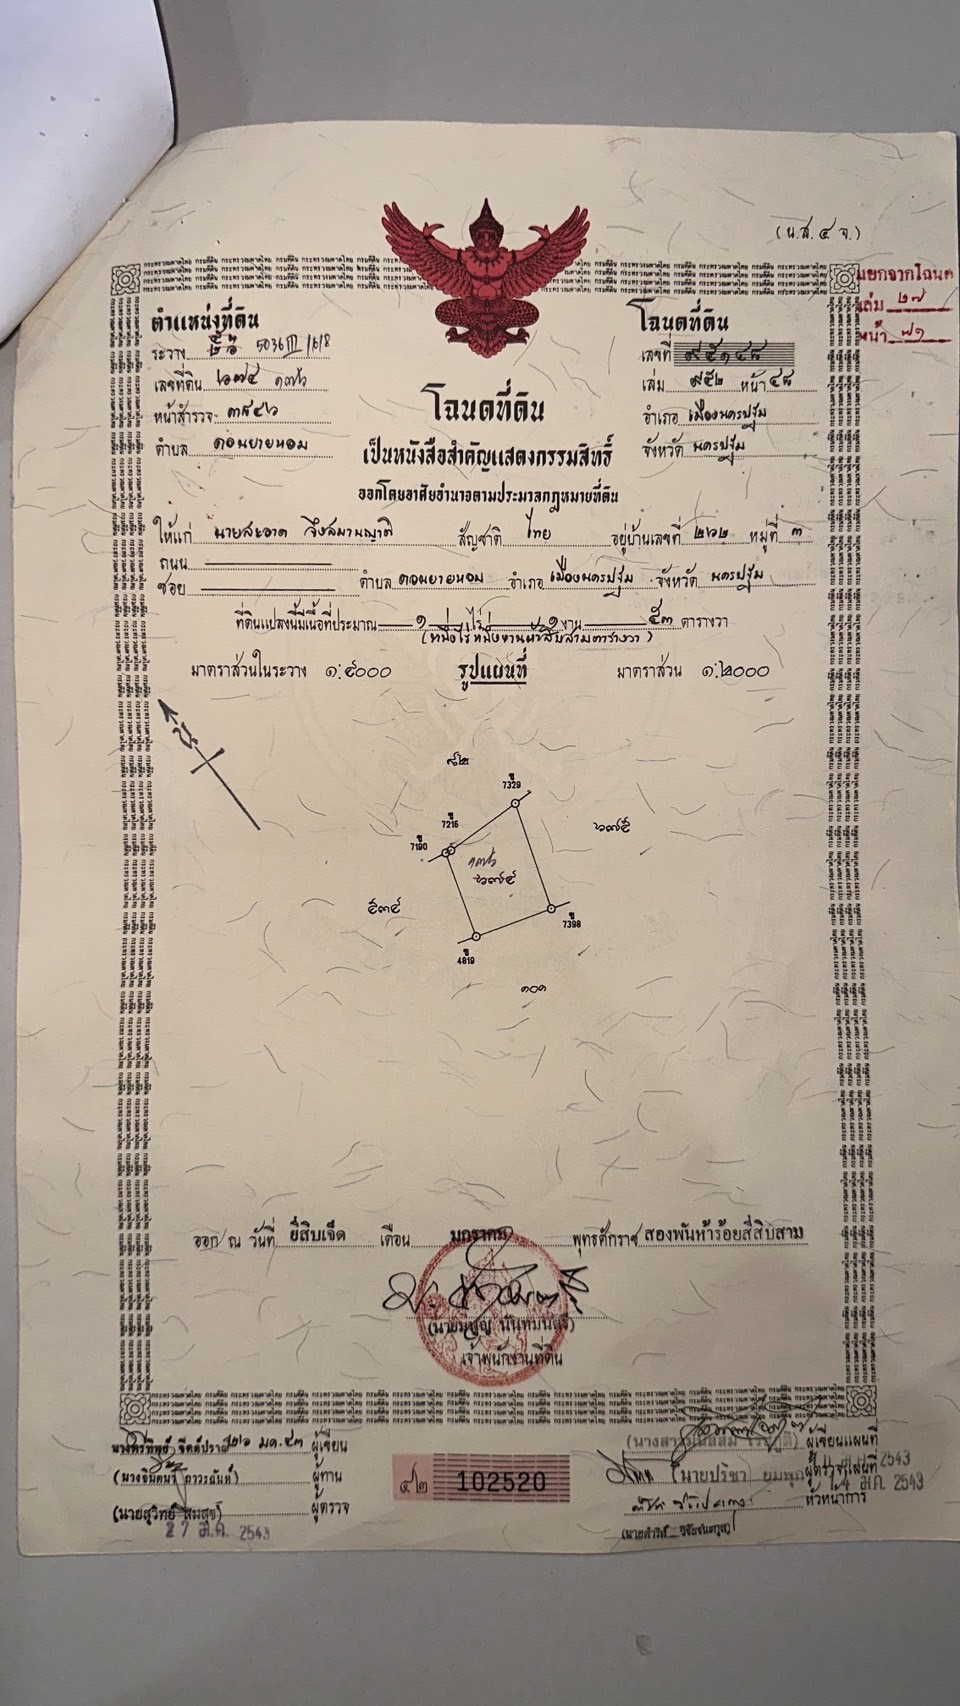 (น.ส. ๔ จ.)
แยกจากโฉนด
เล่ม ๒๗
หน้า ๗๑
ตำแหน่งที่ดิน
ระวาง 5036 III 1618
เลขที่ดิน
หน้าสำรวจ ๓๕๔๖
ตำบล ดอนยายหอม
โฉนดที่ดิน
เลขที่ ๙๕๑๔๘
เล่ม ๙๕๒ หน้า ๔๘
อำเภอ เมืองนครปฐม
จังหวัด นครปฐม
โฉนดที่ดิน
เป็นหนังสือสำคัญแสดงกรรมสิทธิ์
ออกโดยอาศัยอำนาจตามประมวลกฎหมายที่ดิน
ให้แก่ นายสะอาด จึงสมานญาติ สัญชาติ ไทย อยู่บ้านเลขที่ ๒๖๒ หมู่ที่ ๓
ถนน
ซอย ตำบล ดอนยายหอม อำเภอ เมืองนครปฐม จังหวัด นครปฐม
ที่ดินแปลงนี้มีเนื้อที่ประมาณ ๑ ไร่ ๑ งาน ๕๓ ตารางวา
(หนึ่งไร่หนึ่งงานห้าสิบสามตารางวา)
มาตราส่วนในระวาง ๑:๔๐๐๐ รูปแผนที่ มาตราส่วน ๑:๒๐๐๐
น
๘๒
ข
7329
ข
7215
ข
7190
๖๗๕
๖๗๔
๕๓๔
ข
7398
ข
4819
๓๐๓
ออก ณ วันที่ ยี่สิบเจ็ด เดือน มกราคม พุทธศักราช สองพันห้าร้อยสี่สิบสาม
เจ้าพนักงานที่ดิน
๒๖ มค. ๔๓ ผู้เขียน
ผู้ทาน
(นายสุวิทย์ สมสุข) ผู้ตรวจ
27 ม.ค. 2543
๔๒ 102520
ผู้เขียนแผนที่
ผู้ตรวจแผนที่
หัวหน้าการ
ม.ค. 2543